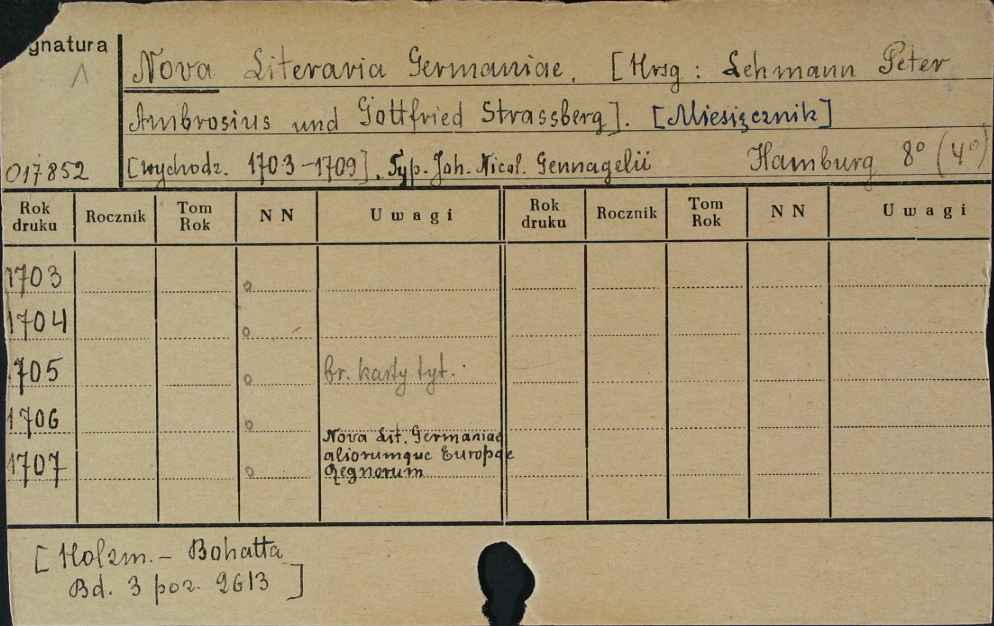 gnatura
Nova Literaria Germaniae. [Hrsg: Lehmann Peter
Ambrosius und Gottfried Strassberg]. [Miesięcznik]
017852 [wychodz. 1703-1709]. Typ. Joh. Nicol. Gennagelii Hamburg 8° (4°)
Rok druku Rocznik Tom Rok NN Uwagi Rok druku Rocznik Tom Rok NN Uwagi
1703 o
1704 o
1705 o br. karty tyt.
1706 o
Nova Lit. Germaniae
aliorumque Europae
1707 o Regnorum
[Holzm. - Bohatta
Bd. 3 poz. 2613]